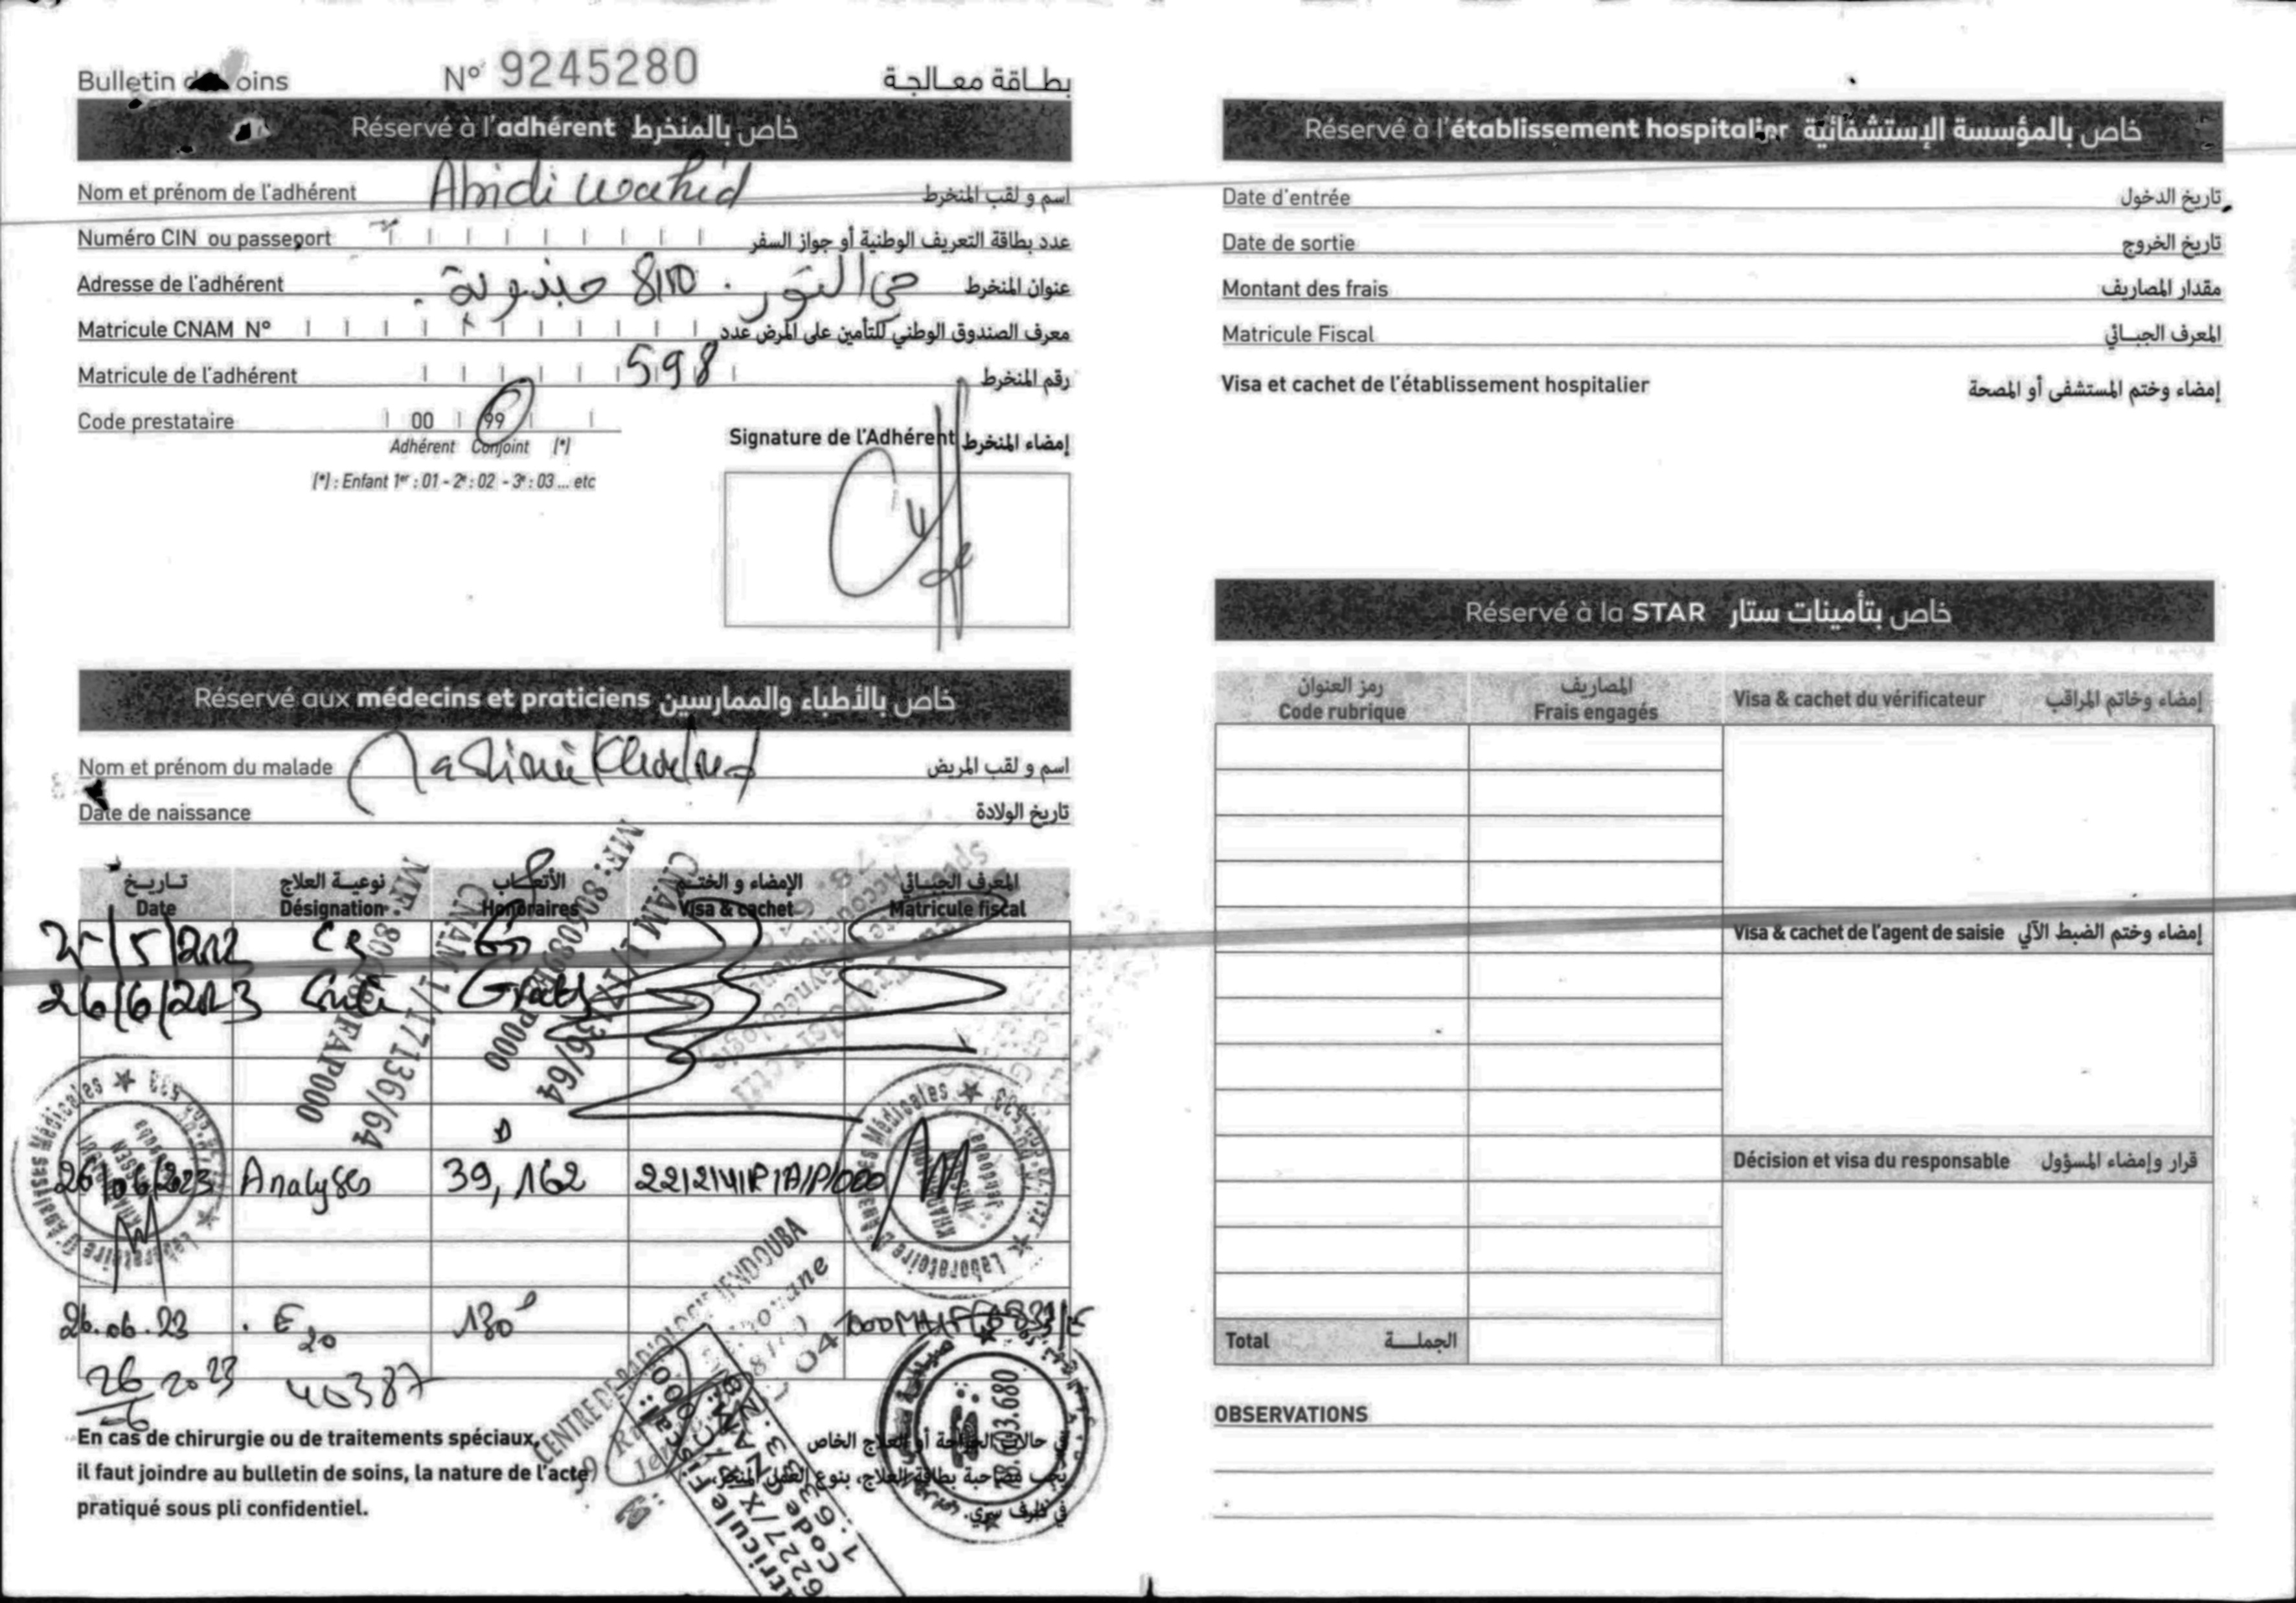 Bulletin de soins N° 9245280 بطاقة معالجة
Réservé à l'adhérent خاص بالمنخرط
Nom et prénom de l'adhérent Abidi Wahid اسم و لقب المنخرط
Numéro CIN ou passeport عدد بطاقة التعريف الوطنية أو جواز السفر
Adresse de l'adhérent حي النور . 8110 جندوبة . عنوان المنخرط
Matricule CNAM N° معرف الصندوق الوطني للتأمين على المرض عدد
Matricule de l'adhérent 598 رقم المنخرط
Code prestataire 00 99
Adhérent Conjoint (*)
(*) : Enfant 1er : 01 - 2e : 02 - 3e : 03 ... etc
Signature de l'Adhérent إمضاء المنخرط
Réservé aux médecins et praticiens خاص بالأطباء والممارسين
Nom et prénom du malade اسم و لقب المريض
Date de naissance تاريخ الولادة
تاريخ نوعية العلاج الأتعاب الإمضاء و الختم المعرف الجبائي
Date Désignation Honoraires Visa & cachet Matricule fiscal
26/6/2023 Gratis
MF: 806089
CNAM 1/17136/64
Laboratoire d'Analyses Médicales
26/06/2023 Analyses 39,162 22121411R1A1P1000
26.06.23 E 20 130
CENTRE DE RADIOLOGIE JENDOUBA
26 2023 40387
6
78.603.680
En cas de chirurgie ou de traitements spéciaux,
il faut joindre au bulletin de soins, la nature de l'acte
pratiqué sous pli confidentiel.
في حالات الجراحة أو العلاج الخاص
يجب مصاحبة بطاقة العلاج، بنوع العمل المنجز،
في ظرف سري.
Réservé à l'établissement hospitalier خاص بالمؤسسة الإستشفائية
Date d'entrée تاريخ الدخول
Date de sortie تاريخ الخروج
Montant des frais مقدار المصاريف
Matricule Fiscal المعرف الجبائي
Visa et cachet de l'établissement hospitalier إمضاء وختم المستشفى أو المصحة
Réservé à la STAR خاص بتأمينات ستار
رمز العنوان المصاريف
Code rubrique Frais engagés Visa & cachet du vérificateur إمضاء وخاتم المراقب
Visa & cachet de l'agent de saisie إمضاء وختم الضبط الآلي
Décision et visa du responsable قرار وإمضاء المسؤول
Total الجملة
OBSERVATIONS